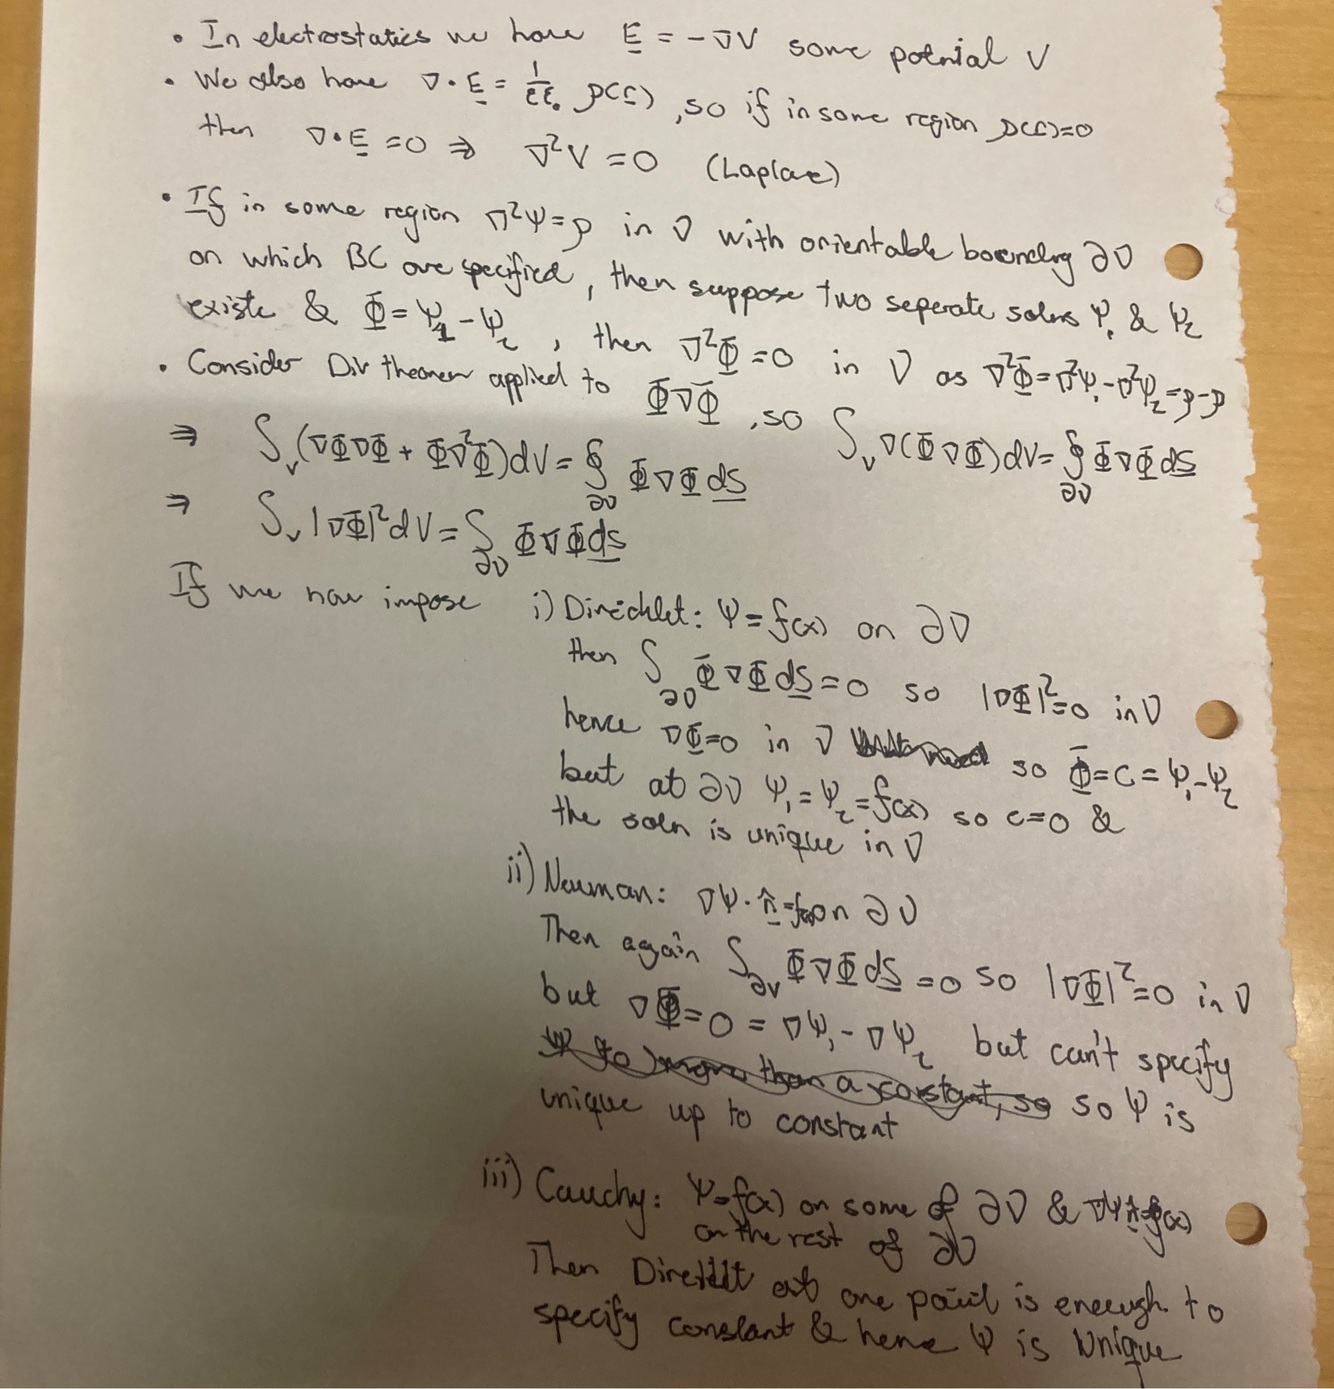 • In electrostatics we have E = -∇V some potnial V
• We also have ∇·E = 1/εε₀ ρ(r), so if in some region ρ(r)=0
then ∇·E = 0 ⇒ ∇²V = 0 (Laplace)
• If in some region ∇²Ψ=ρ in V with orientable boundry ∂V
on which BC are specified, then suppose two seperate solns Ψ₁ & Ψ₂
existe & Φ = Ψ₁ - Ψ₂, then ∇²Φ = 0 in V as ∇²Φ = ∇²Ψ₁ - ∇²Ψ₂ = ρ-ρ
• Consider Div theorem applied to Φ∇Φ, so ∫_V ∇(Φ∇Φ)dV = ∮_∂V Φ∇Φ dS
⇒ ∫_V (∇Φ∇Φ + Φ∇²Φ)dV = ∮_∂V Φ∇Φ dS
⇒ ∫_V |∇Φ|² dV = ∫_∂V Φ∇Φ dS
If we now impose i) Direchlet: Ψ = f(x) on ∂V
then ∫_∂V Φ∇Φ dS = 0 so |∇Φ|² = 0 in V
hence ∇Φ=0 in V so Φ = C = Ψ₁-Ψ₂
but at ∂V Ψ₁ = Ψ₂ = f(x) so c=0 &
the soln is unique in V
ii) Neuman: ∇Ψ·n̂ = f(x) on ∂V
Then again ∫_∂V Φ∇Φ dS = 0 so |∇Φ|² = 0 in V
but ∇Φ = 0 = ∇Ψ₁ - ∇Ψ₂ but can't specify
Ψ to more than a constant, so so Ψ is
unique up to constant
iii) Cauchy: Ψ=f(x) on some of ∂V & ∇Ψ·n̂=g(x)
on the rest of ∂V
Then Direchlt at one point is enough to
specify constant & hence Ψ is Unique